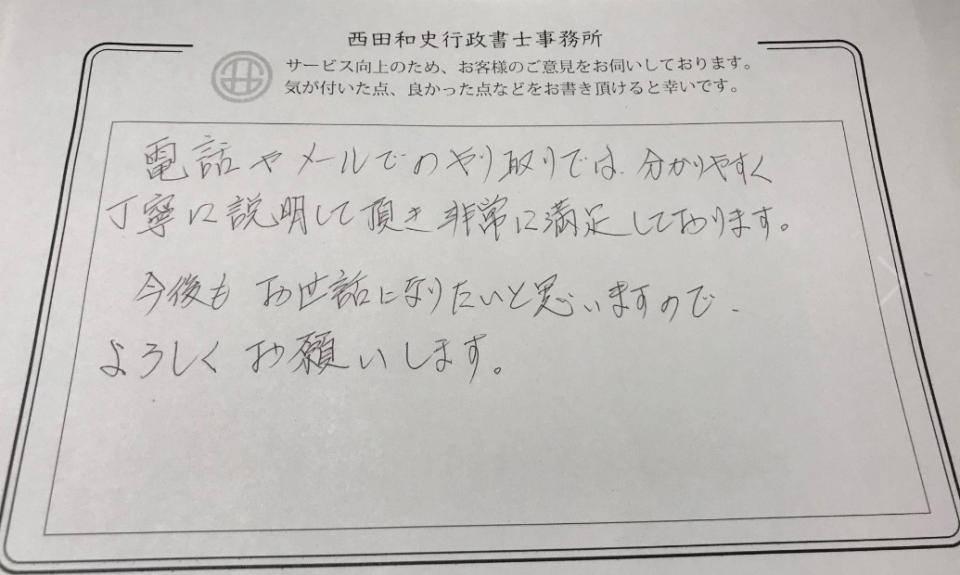 西田和史行政書士事務所
サービス向上のため、お客様のご意見をお伺いしております。
気が付いた点、良かった点などをお書き頂けると幸いです。
電話やメールでのやり取りでは、分かりやすく
丁寧に説明して頂き非常に満足しております。
今後もお世話になりたいと思いますので、
よろしくお願いします。